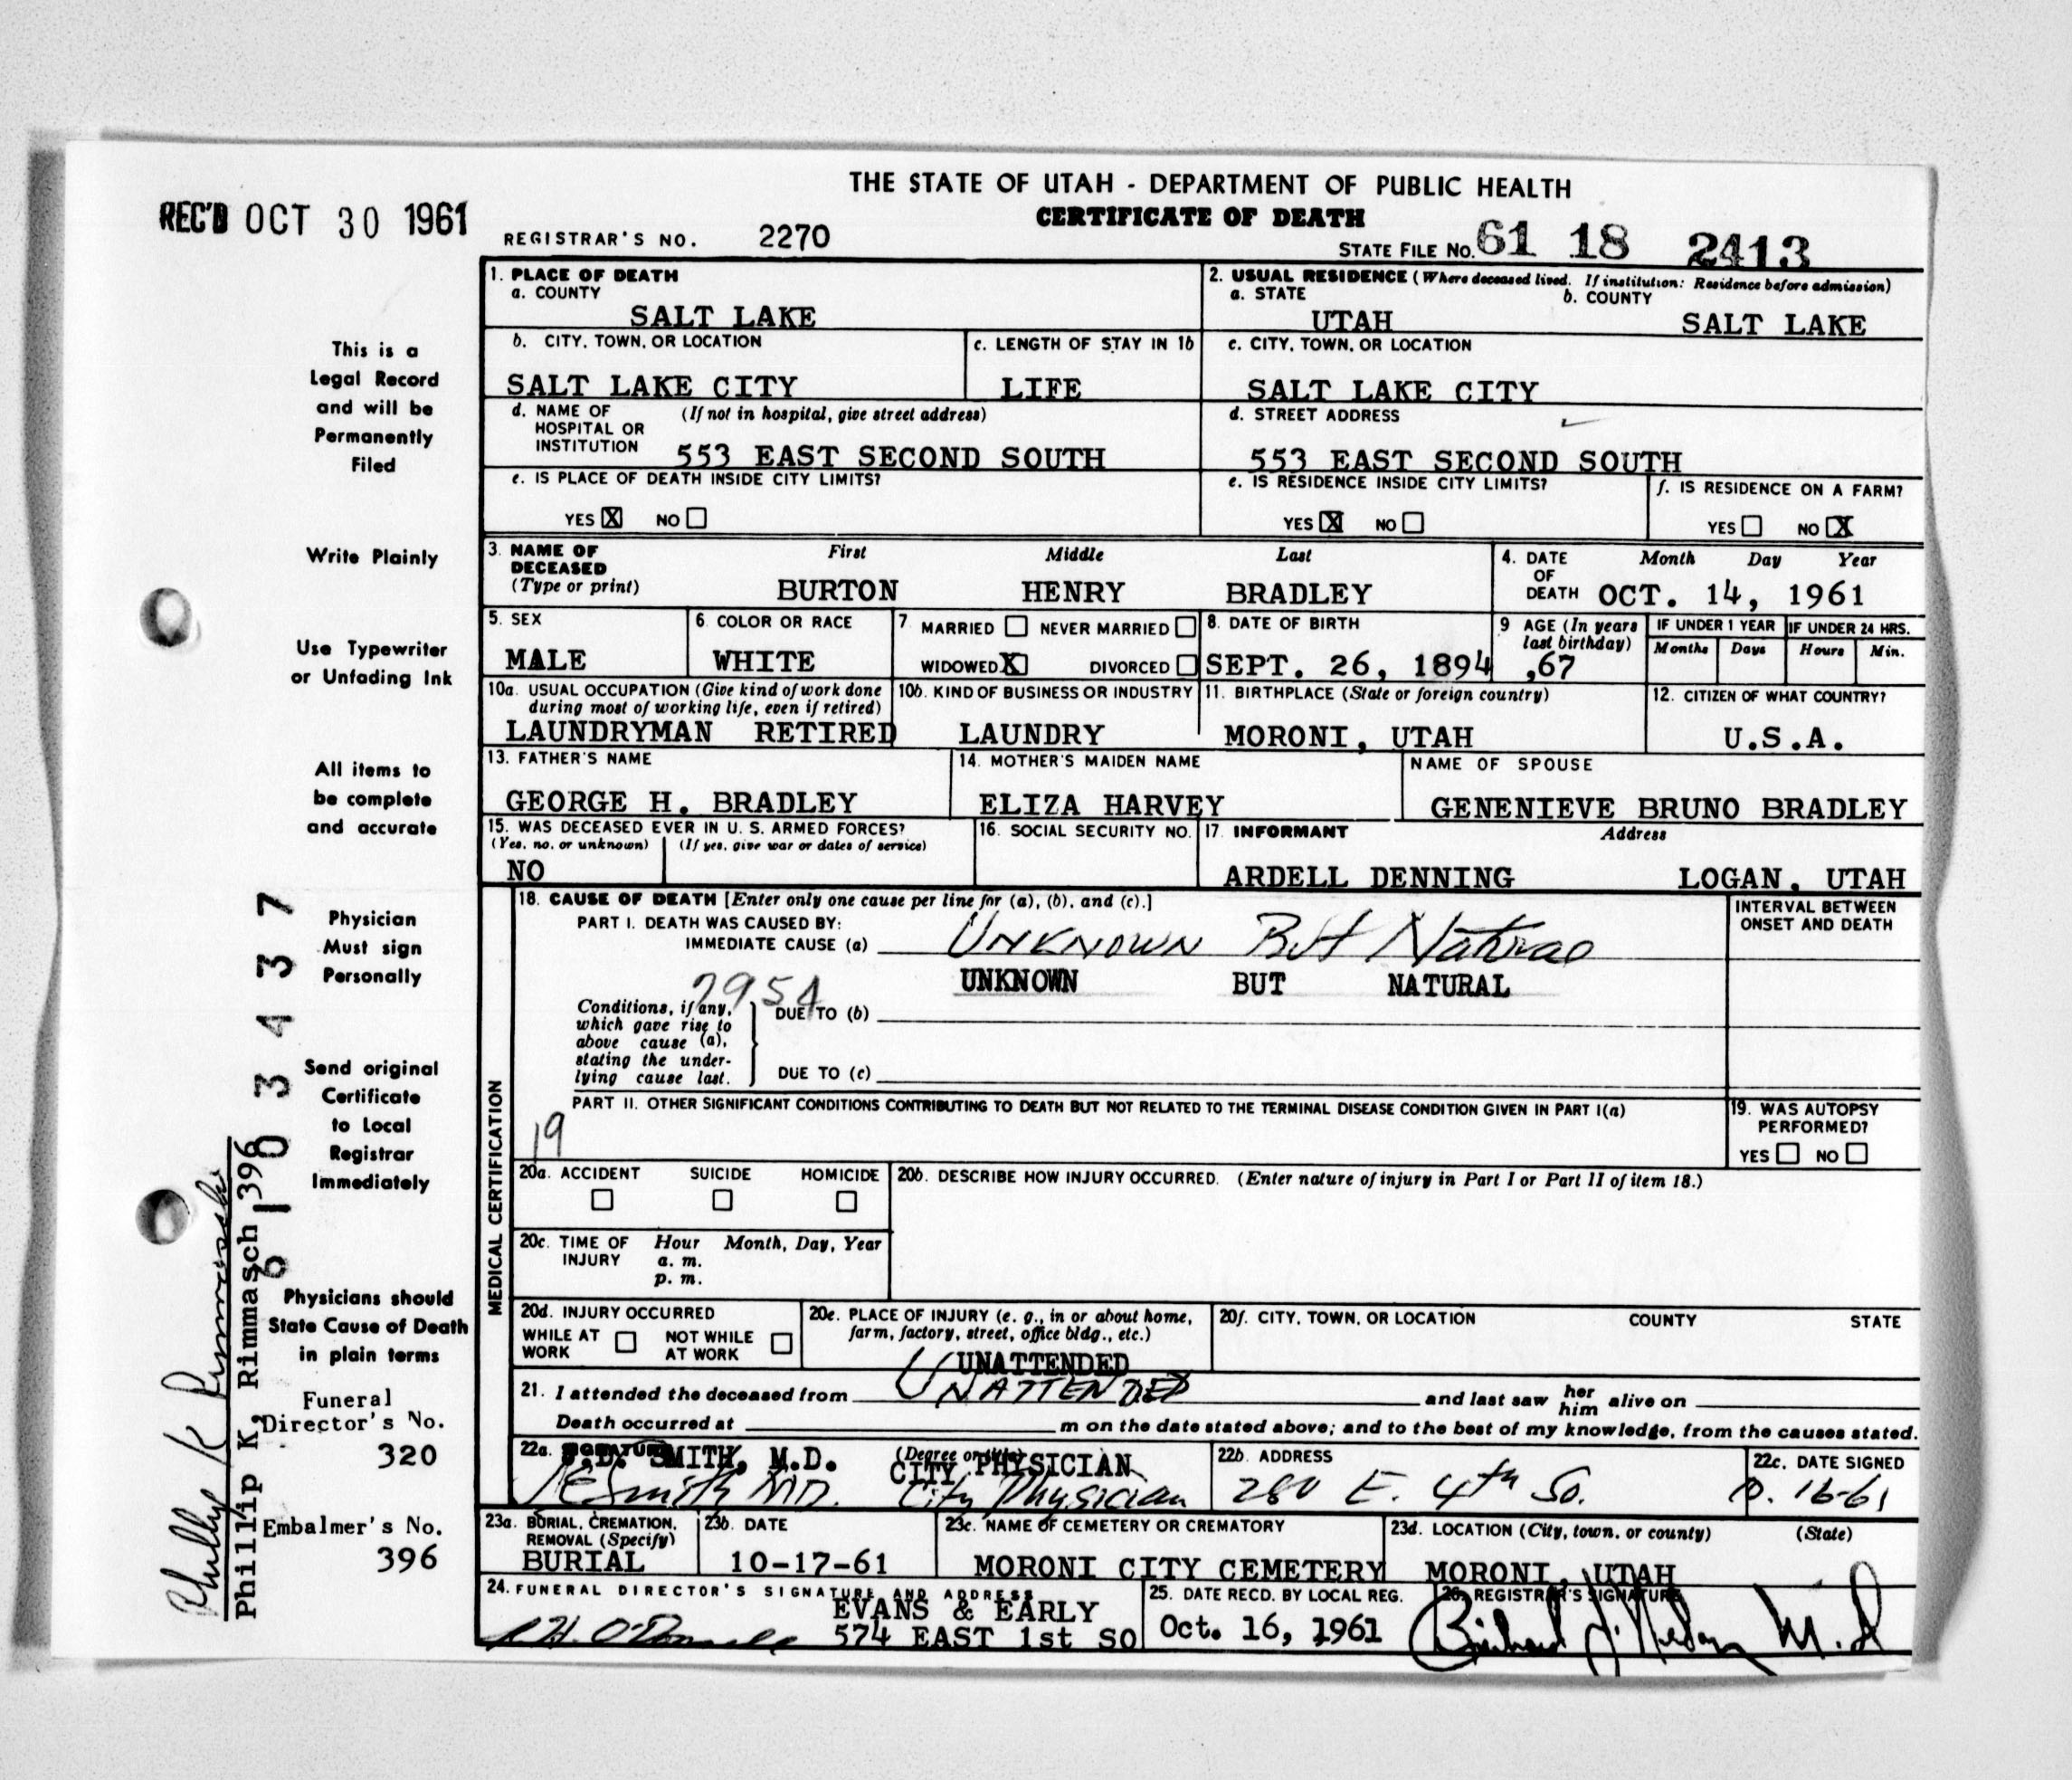 THE STATE OF UTAH - DEPARTMENT OF PUBLIC HEALTH
REC'D OCT 30 1961
CERTIFICATE OF DEATH
REGISTRAR'S NO. 2270
STATE FILE NO. 61 18 2413
1. PLACE OF DEATH
a. COUNTY
SALT LAKE
2. USUAL RESIDENCE (Where deceased lived. If institution: Residence before admission)
a. STATE
UTAH
b. COUNTY
SALT LAKE
b. CITY, TOWN, OR LOCATION
SALT LAKE CITY
c. LENGTH OF STAY IN 1b
LIFE
c. CITY, TOWN, OR LOCATION
SALT LAKE CITY
d. NAME OF HOSPITAL OR INSTITUTION
(If not in hospital, give street address)
553 EAST SECOND SOUTH
d. STREET ADDRESS
553 EAST SECOND SOUTH
e. IS PLACE OF DEATH INSIDE CITY LIMITS?
YES X NO
e. IS RESIDENCE INSIDE CITY LIMITS?
YES X NO
f. IS RESIDENCE ON A FARM?
YES NO X
3. NAME OF DECEASED
(Type or print)
First Middle Last
BURTON HENRY BRADLEY
4. DATE OF DEATH
Month Day Year
OCT. 14, 1961
5. SEX
MALE
6. COLOR OR RACE
WHITE
7. MARRIED NEVER MARRIED
WIDOWED X DIVORCED
8. DATE OF BIRTH
SEPT. 26, 1894
9. AGE (In years last birthday)
,67
IF UNDER 1 YEAR
Months Days
IF UNDER 24 HRS.
Hours Min.
10a. USUAL OCCUPATION (Give kind of work done during most of working life, even if retired)
LAUNDRYMAN RETIRED
10b. KIND OF BUSINESS OR INDUSTRY
LAUNDRY
11. BIRTHPLACE (State or foreign country)
MORONI, UTAH
12. CITIZEN OF WHAT COUNTRY?
U.S.A.
13. FATHER'S NAME
GEORGE H. BRADLEY
14. MOTHER'S MAIDEN NAME
ELIZA HARVEY
NAME OF SPOUSE
GENENIEVE BRUNO BRADLEY
15. WAS DECEASED EVER IN U. S. ARMED FORCES?
(Yes, no, or unknown) (If yes, give war or dates of service)
NO
16. SOCIAL SECURITY NO.
17. INFORMANT Address
ARDELL DENNING LOGAN, UTAH
MEDICAL CERTIFICATION
18. CAUSE OF DEATH [Enter only one cause per line for (a), (b), and (c).]
PART I. DEATH WAS CAUSED BY:
IMMEDIATE CAUSE (a) Unknown But Natural
UNKNOWN BUT NATURAL
INTERVAL BETWEEN ONSET AND DEATH
7954
Conditions, if any, which gave rise to above cause (a), stating the underlying cause last.
DUE TO (b)
DUE TO (c)
PART II. OTHER SIGNIFICANT CONDITIONS CONTRIBUTING TO DEATH BUT NOT RELATED TO THE TERMINAL DISEASE CONDITION GIVEN IN PART I(a)
19
19. WAS AUTOPSY PERFORMED?
YES NO
20a. ACCIDENT SUICIDE HOMICIDE
20b. DESCRIBE HOW INJURY OCCURRED. (Enter nature of injury in Part I or Part II of item 18.)
20c. TIME OF INJURY
Hour Month, Day, Year
a. m.
p. m.
20d. INJURY OCCURRED
WHILE AT WORK NOT WHILE AT WORK
20e. PLACE OF INJURY (e. g., in or about home, farm, factory, street, office bldg., etc.)
20f. CITY, TOWN, OR LOCATION COUNTY STATE
UNATTENDED
21. I attended the deceased from UNATTENDED and last saw her him alive on
Death occurred at m on the date stated above; and to the best of my knowledge, from the causes stated.
22a. SIGNATURE (Degree or title)
SMITH, M.D. CITY PHYSICIAN
Smith MD. City Physician
22b. ADDRESS
280 E. 4th So.
22c. DATE SIGNED
10. 16-61
23a. BURIAL, CREMATION, REMOVAL (Specify)
BURIAL
23b. DATE
10-17-61
23c. NAME OF CEMETERY OR CREMATORY
MORONI CITY CEMETERY
23d. LOCATION (City, town, or county) (State)
MORONI, UTAH
24. FUNERAL DIRECTOR'S SIGNATURE AND ADDRESS
EVANS & EARLY
574 EAST 1st SO
25. DATE RECD. BY LOCAL REG.
Oct. 16, 1961
26. REGISTRAR'S SIGNATURE
M.D
This is a
Legal Record
and will be
Permanently
Filed
Write Plainly
Use Typewriter
or Unfading Ink
All items to
be complete
and accurate
Physician
Must sign
Personally
Send original
Certificate
to Local
Registrar
Immediately
Physicians should
State Cause of Death
in plain terms
Funeral
Director's No.
320
Embalmer's No.
396
Phillip K. Rimmasch
Phillip K. Rimmasch 396
61 03437